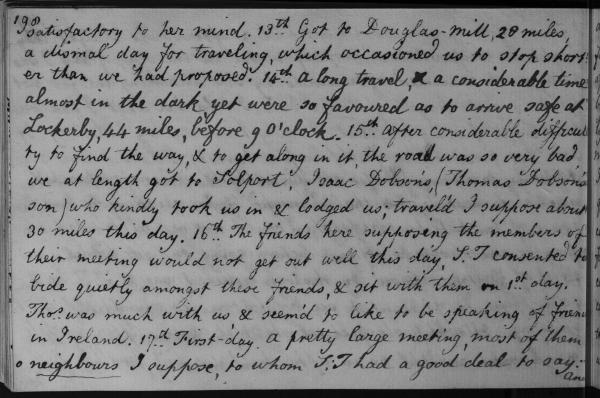 198
satisfactory to her mind. 13th Got to Douglas-mill, 28 miles,
a dismal day for traveling, which occasioned us to stop short-
er than we had proposed. 14th a long travel, & a considerable time
almost in the dark, yet were so favoured as to arrive safe at
Lockerby, 44 miles, before 9 O'clock. 15th after considerable difficul
ty to find the way, & to get along in it, the road was so very bad
we at length got to Solport, Isaac Dobson's, (Thomas Dobson's
son) who kindly took us in & lodged us; travel'd I suppose about
30 miles this day. 16th The friends here supposing the members of
their meeting would not get out well this day, S:T consented to
bide quietly amongst these friends, & sit with them on 1st day.
Thos. was much with us, & seem'd to like to be speaking of frien
in Ireland. 17th First-day a pretty large meeting, most of them
neighbours I suppose, to whom S:T had a good deal to say.
and